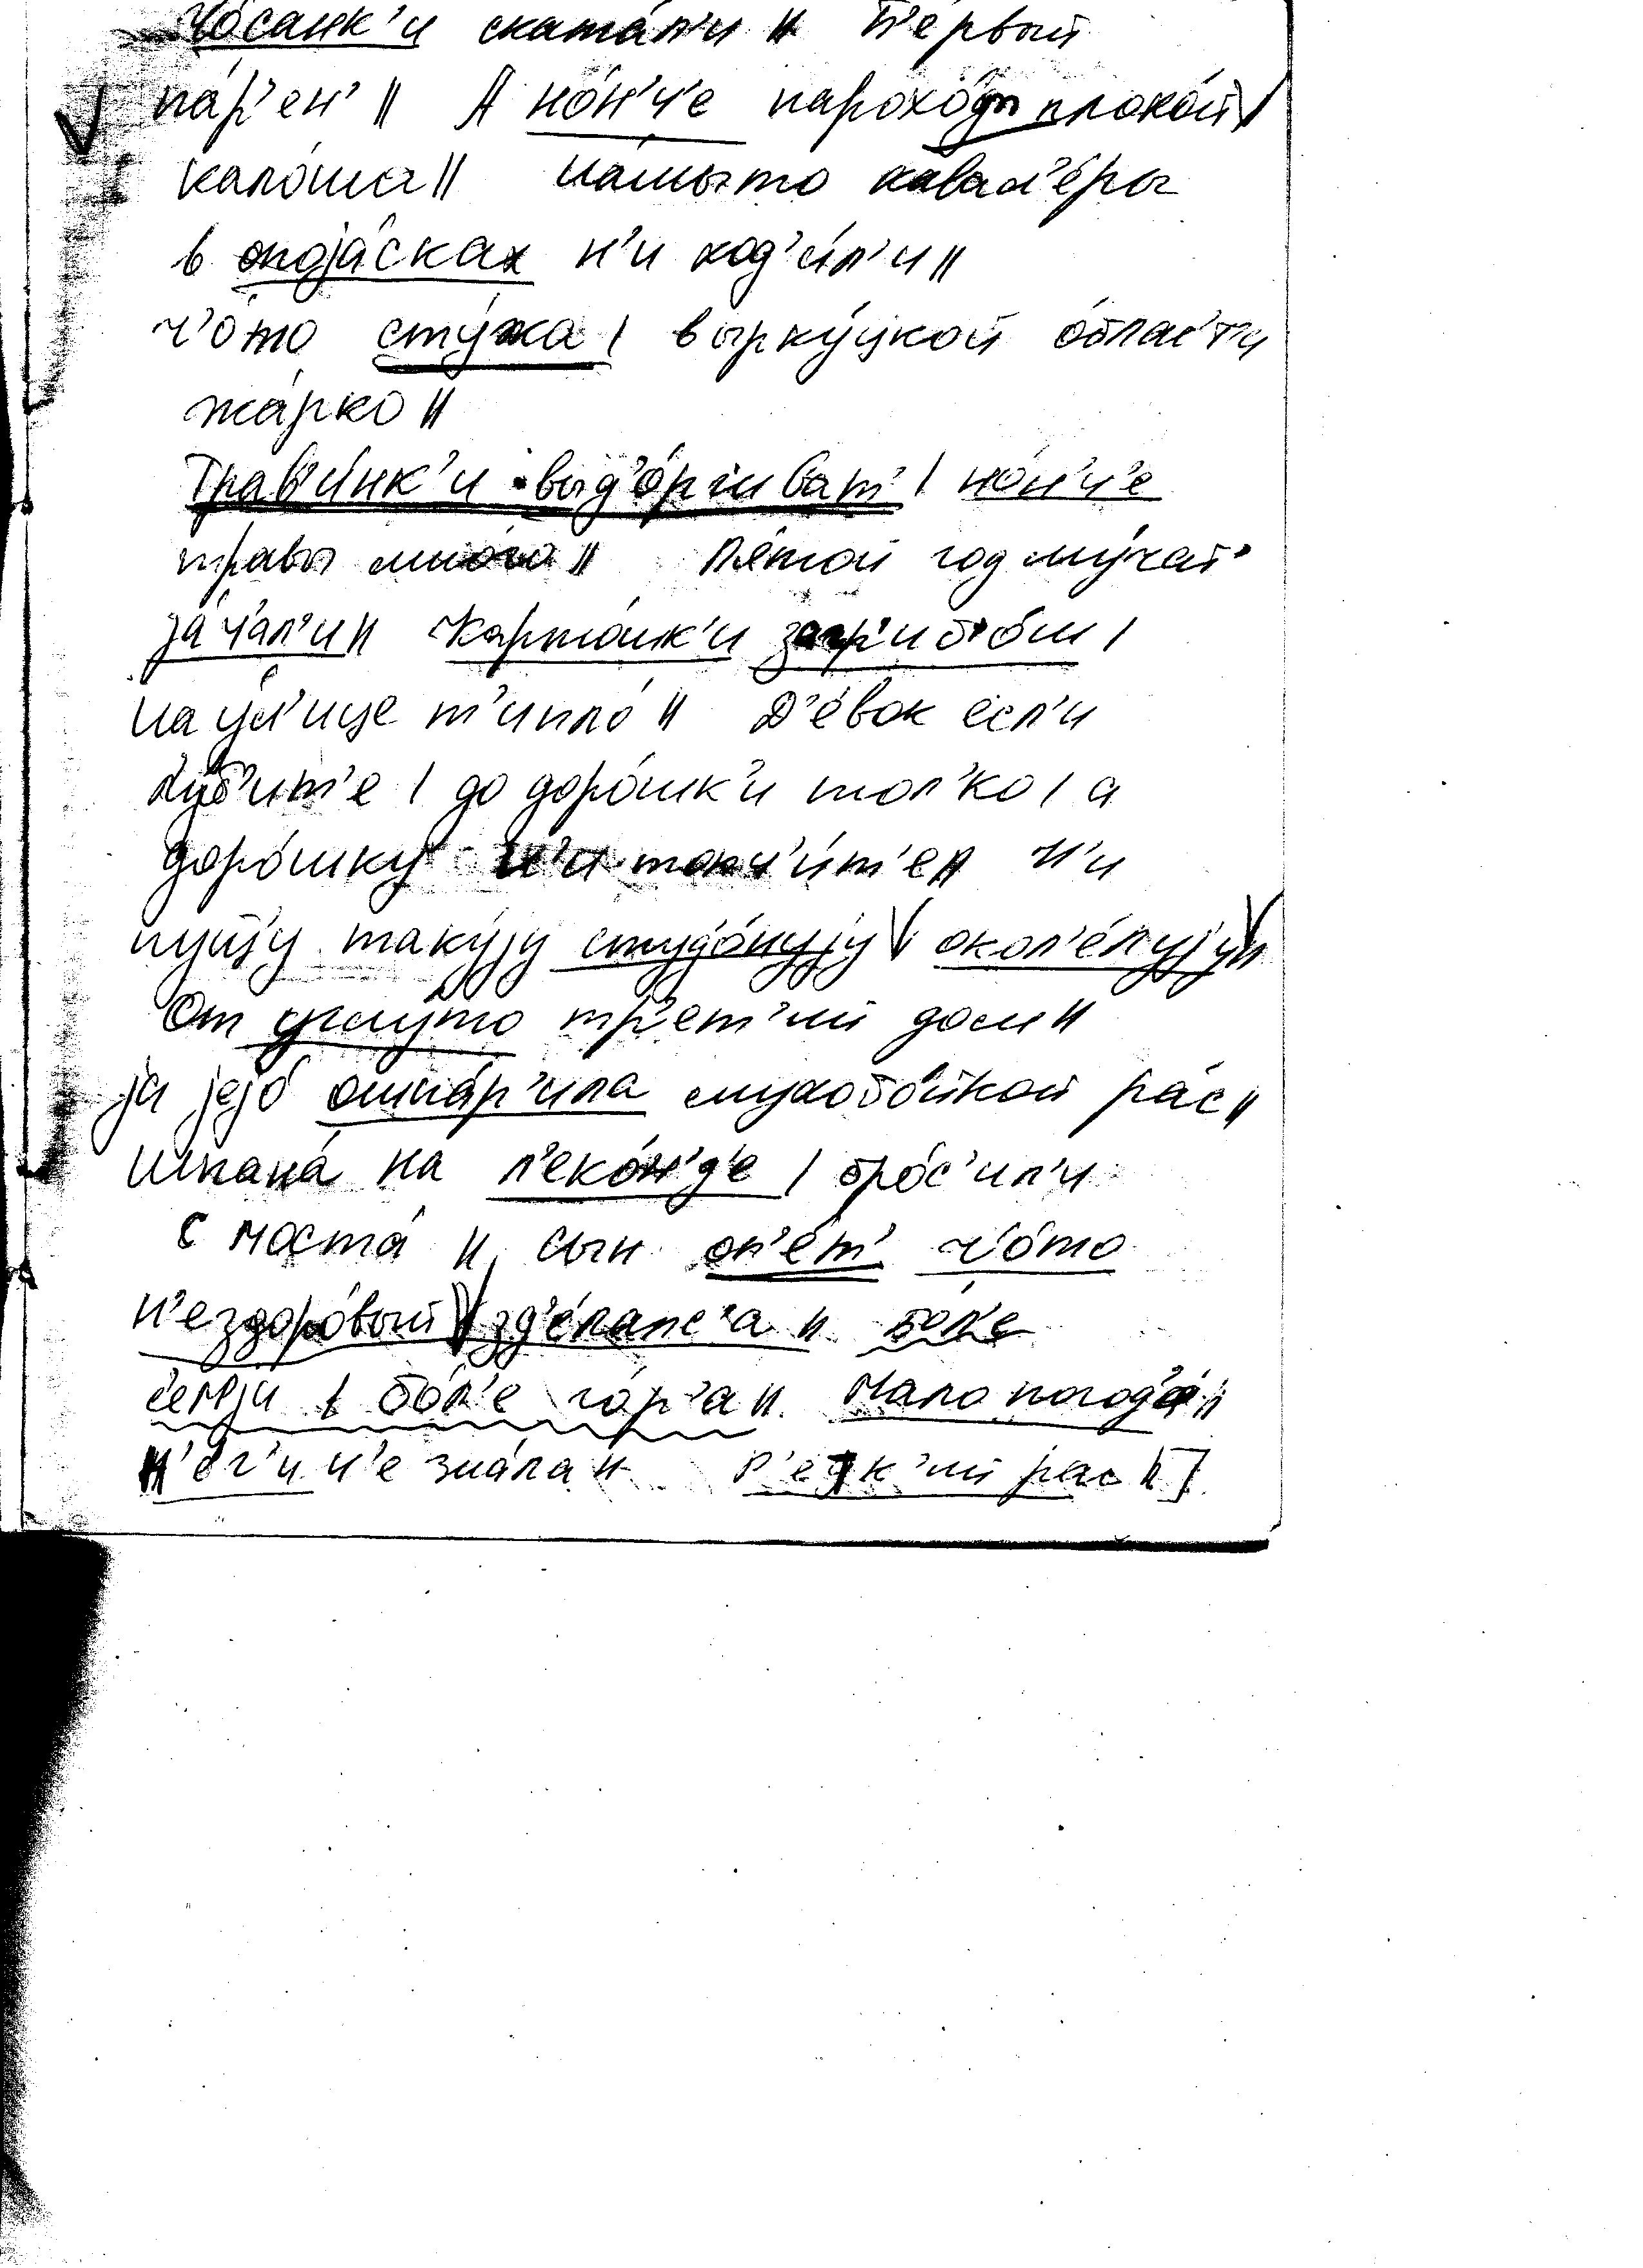 чо́санк'и ската́л'и || п'е́рвый
па́р'ен' || А но́н'ч'е парохо́ды плохо́й |
кало́ша || на́шы то кавал'е́ры
в опоја́сках н'и ход'и́л'и ||
ч'о́то сту́жа | в ырку́цкой о́блас'т'и
жа́рко ||
Трав'и́нк'и выд'о́ргиват' | но́н'ч'е
травы мно́го || п'а́той год му́чат'
за́ч'ал'и || карто́шк'и загр'иб'о́м |
на у́л'ице т'ипло́ || Д'е́вок е́сл'и
л'у́б'ит'е | до доро́шк'и тол'ко | а
доро́шку н'и топч'и́т'е || н'и
пушу́ таку́ју студ'о́нују | окол'е́лују ||
От углу́то тр'е́т'ий дом ||
ја јејо́ ошпа́р'ила мухобо́йкой рас ||
Шпана́ на л'еко́н'д'е | бро́с'ил'и
с моста́ || сын оп'е́т' ч'о́то
н'ездоро́вый | зд'е́лалс'а || бо́л'е
с'емји | бо́л'е го́р'а || Мало погод'а́ ||
н'ег'и н'е зна́ла || Р'е́тк'ий рас || ]